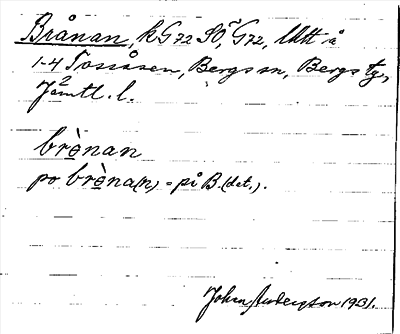 Brånan, k G72 SO, G72, Utt å
1-4 Tossåsen, Bergs sn, Bergs tg,
2
Jämtl. l.
brènan
po brèna(n) = på B. (det.).
John Anderzson 1931.